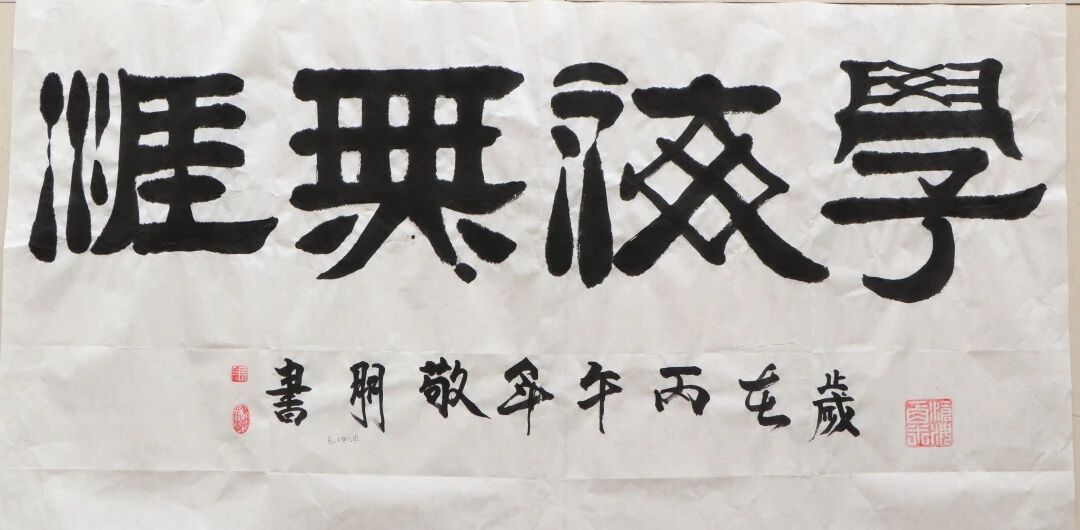 學海無涯
歲在丙午年敬朋書